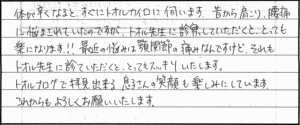 体が辛くなると、すぐにトオルカイロに伺います。昔から肩こり、腰痛
に悩まされていたのですが、トオル先生に診察していただくと、とっても
楽になります!! 最近の悩みは顎関節の痛みなんですけど、それも
トオル先生に診ていただくと、とってもスッキリいたします。
トオルブログで拝見出来る息子さんの笑顔も楽しみにしています。
これからもよろしくお願いいたします。